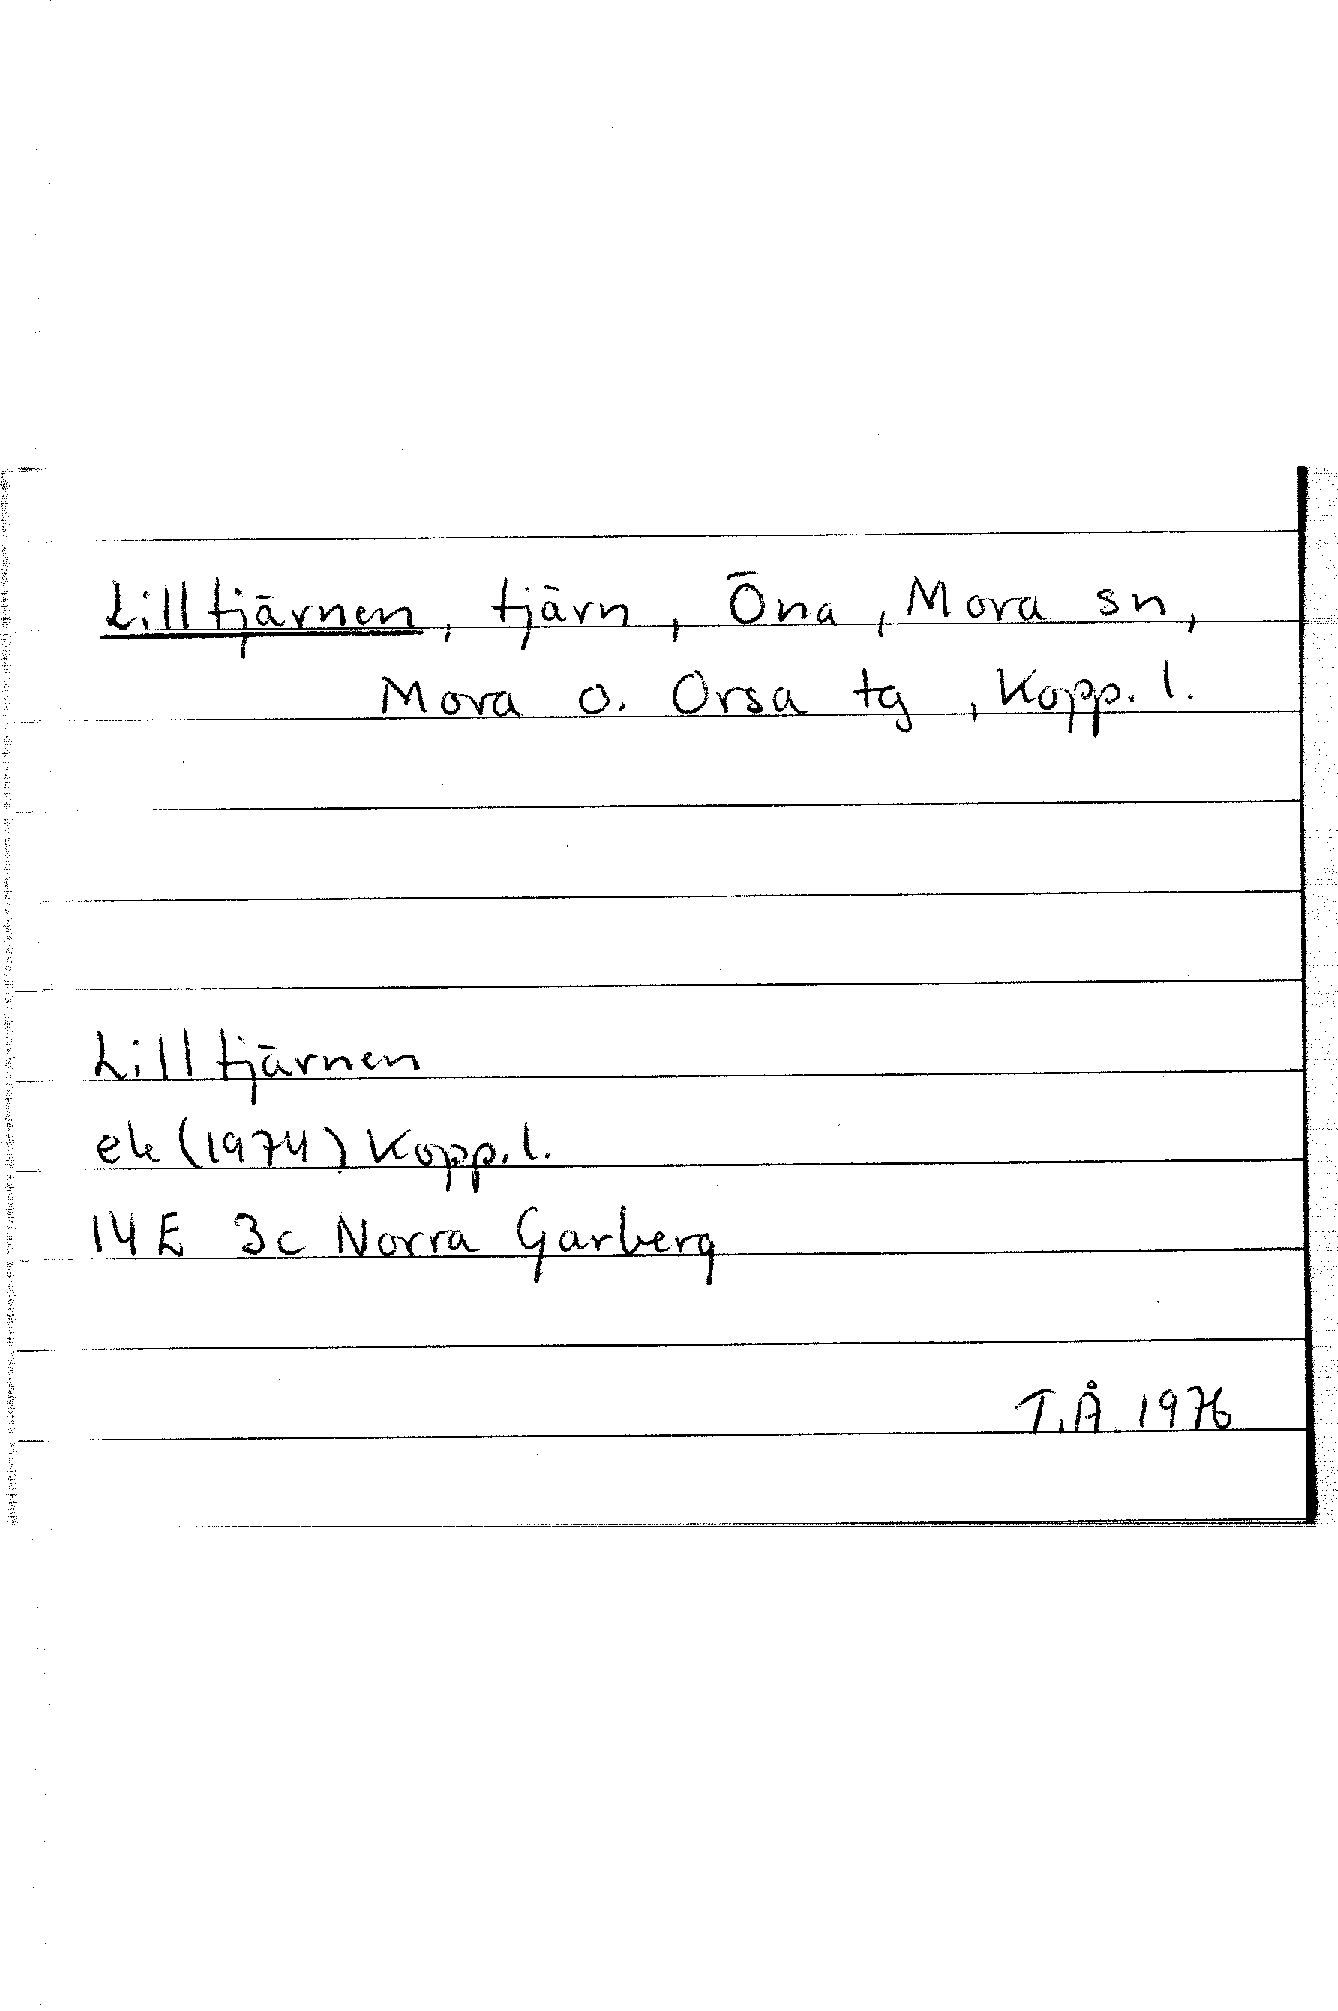 Lilltjärnen, tjärn, Öna, Mora sn,
Mora o. Orsa tg, Kopp. l.
Lilltjärnen
ek (1974) Kopp. l.
14 E 3c Norra Garberg
T.Å. 1976